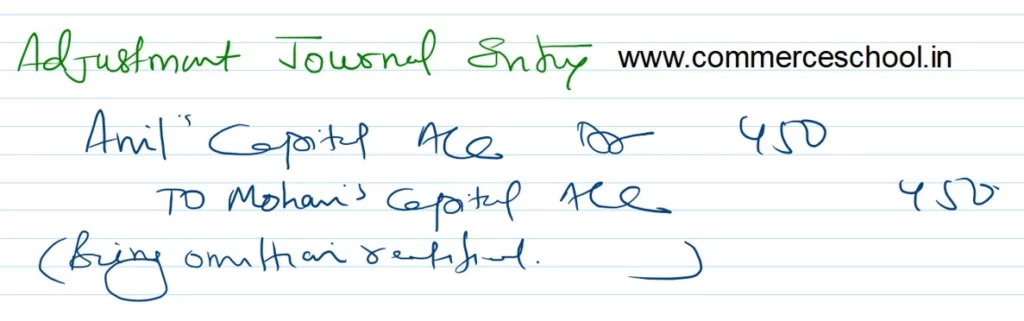 Adjustment Journal Entry www.commerceschool.in
Anil's Capital A/c Dr 450
To Mohan's Capital A/c 450
(Being omission rectified. )